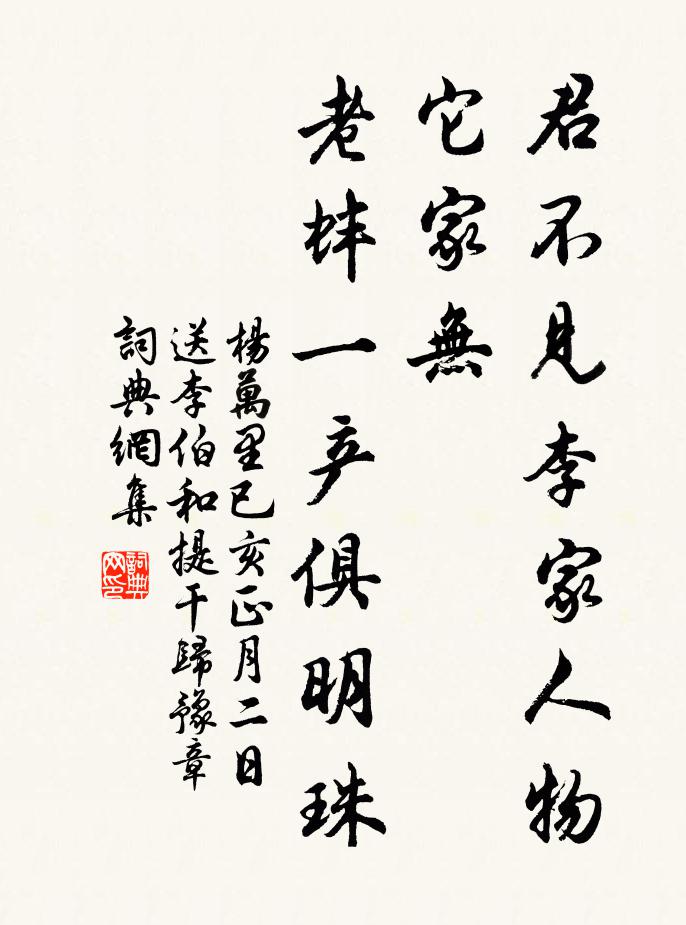 君不見李家人物
它家無
老蚌一产俱明珠
楊萬里己亥正月二日
送李伯和提干歸豫章
詞典網集
詞典網印